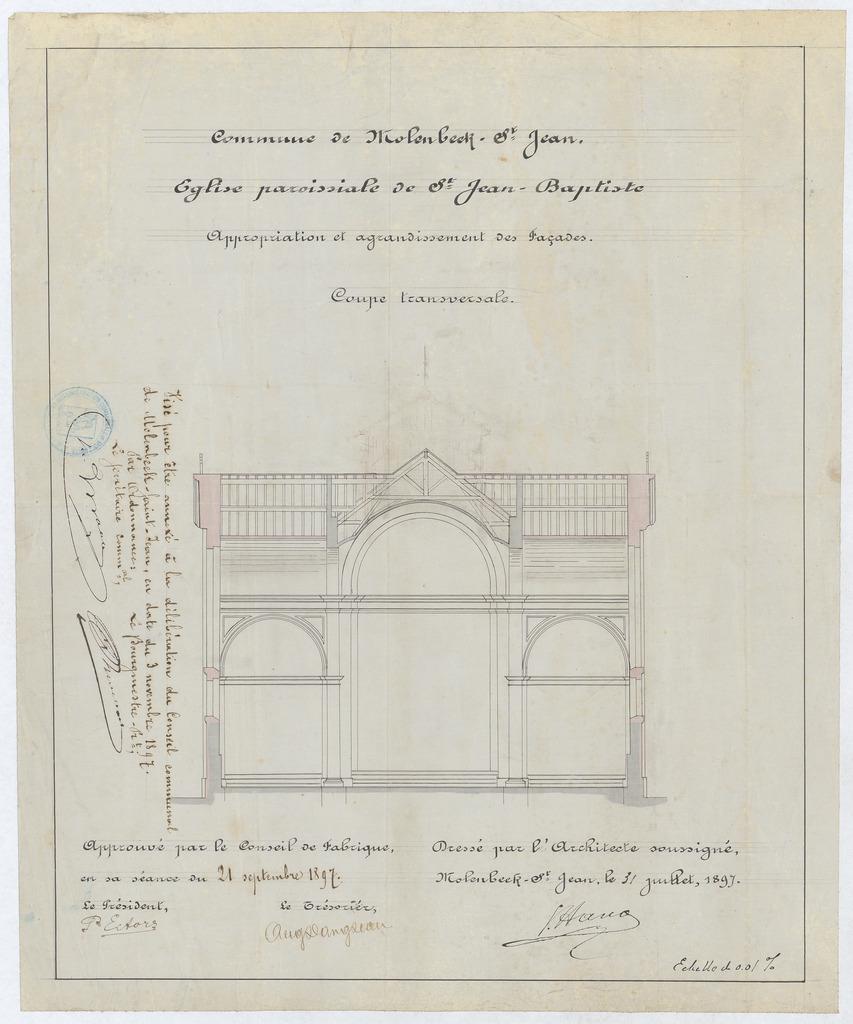 Commune de Molenbeek-St Jean.
Eglise paroissiale de St Jean-Baptiste
Appropriation et agrandissement des Façades.
Coupe transversale.
Visé pour être annexé à la délibération du Conseil communal
de Molenbeek-Saint-Jean, en date du 3 novembre 1897.
Par Ordonnance:
Le Secrétaire commal,
Le Bourgmestre
Approuvé par le Conseil de Fabrique,
en sa séance du 21 septembre 1897.
Le Président,
Le Trésorier,
Dressé par l'Architecte soussigné,
Molenbeek-St Jean, le 31 juillet, 1897.
Echelle de 0.01 %